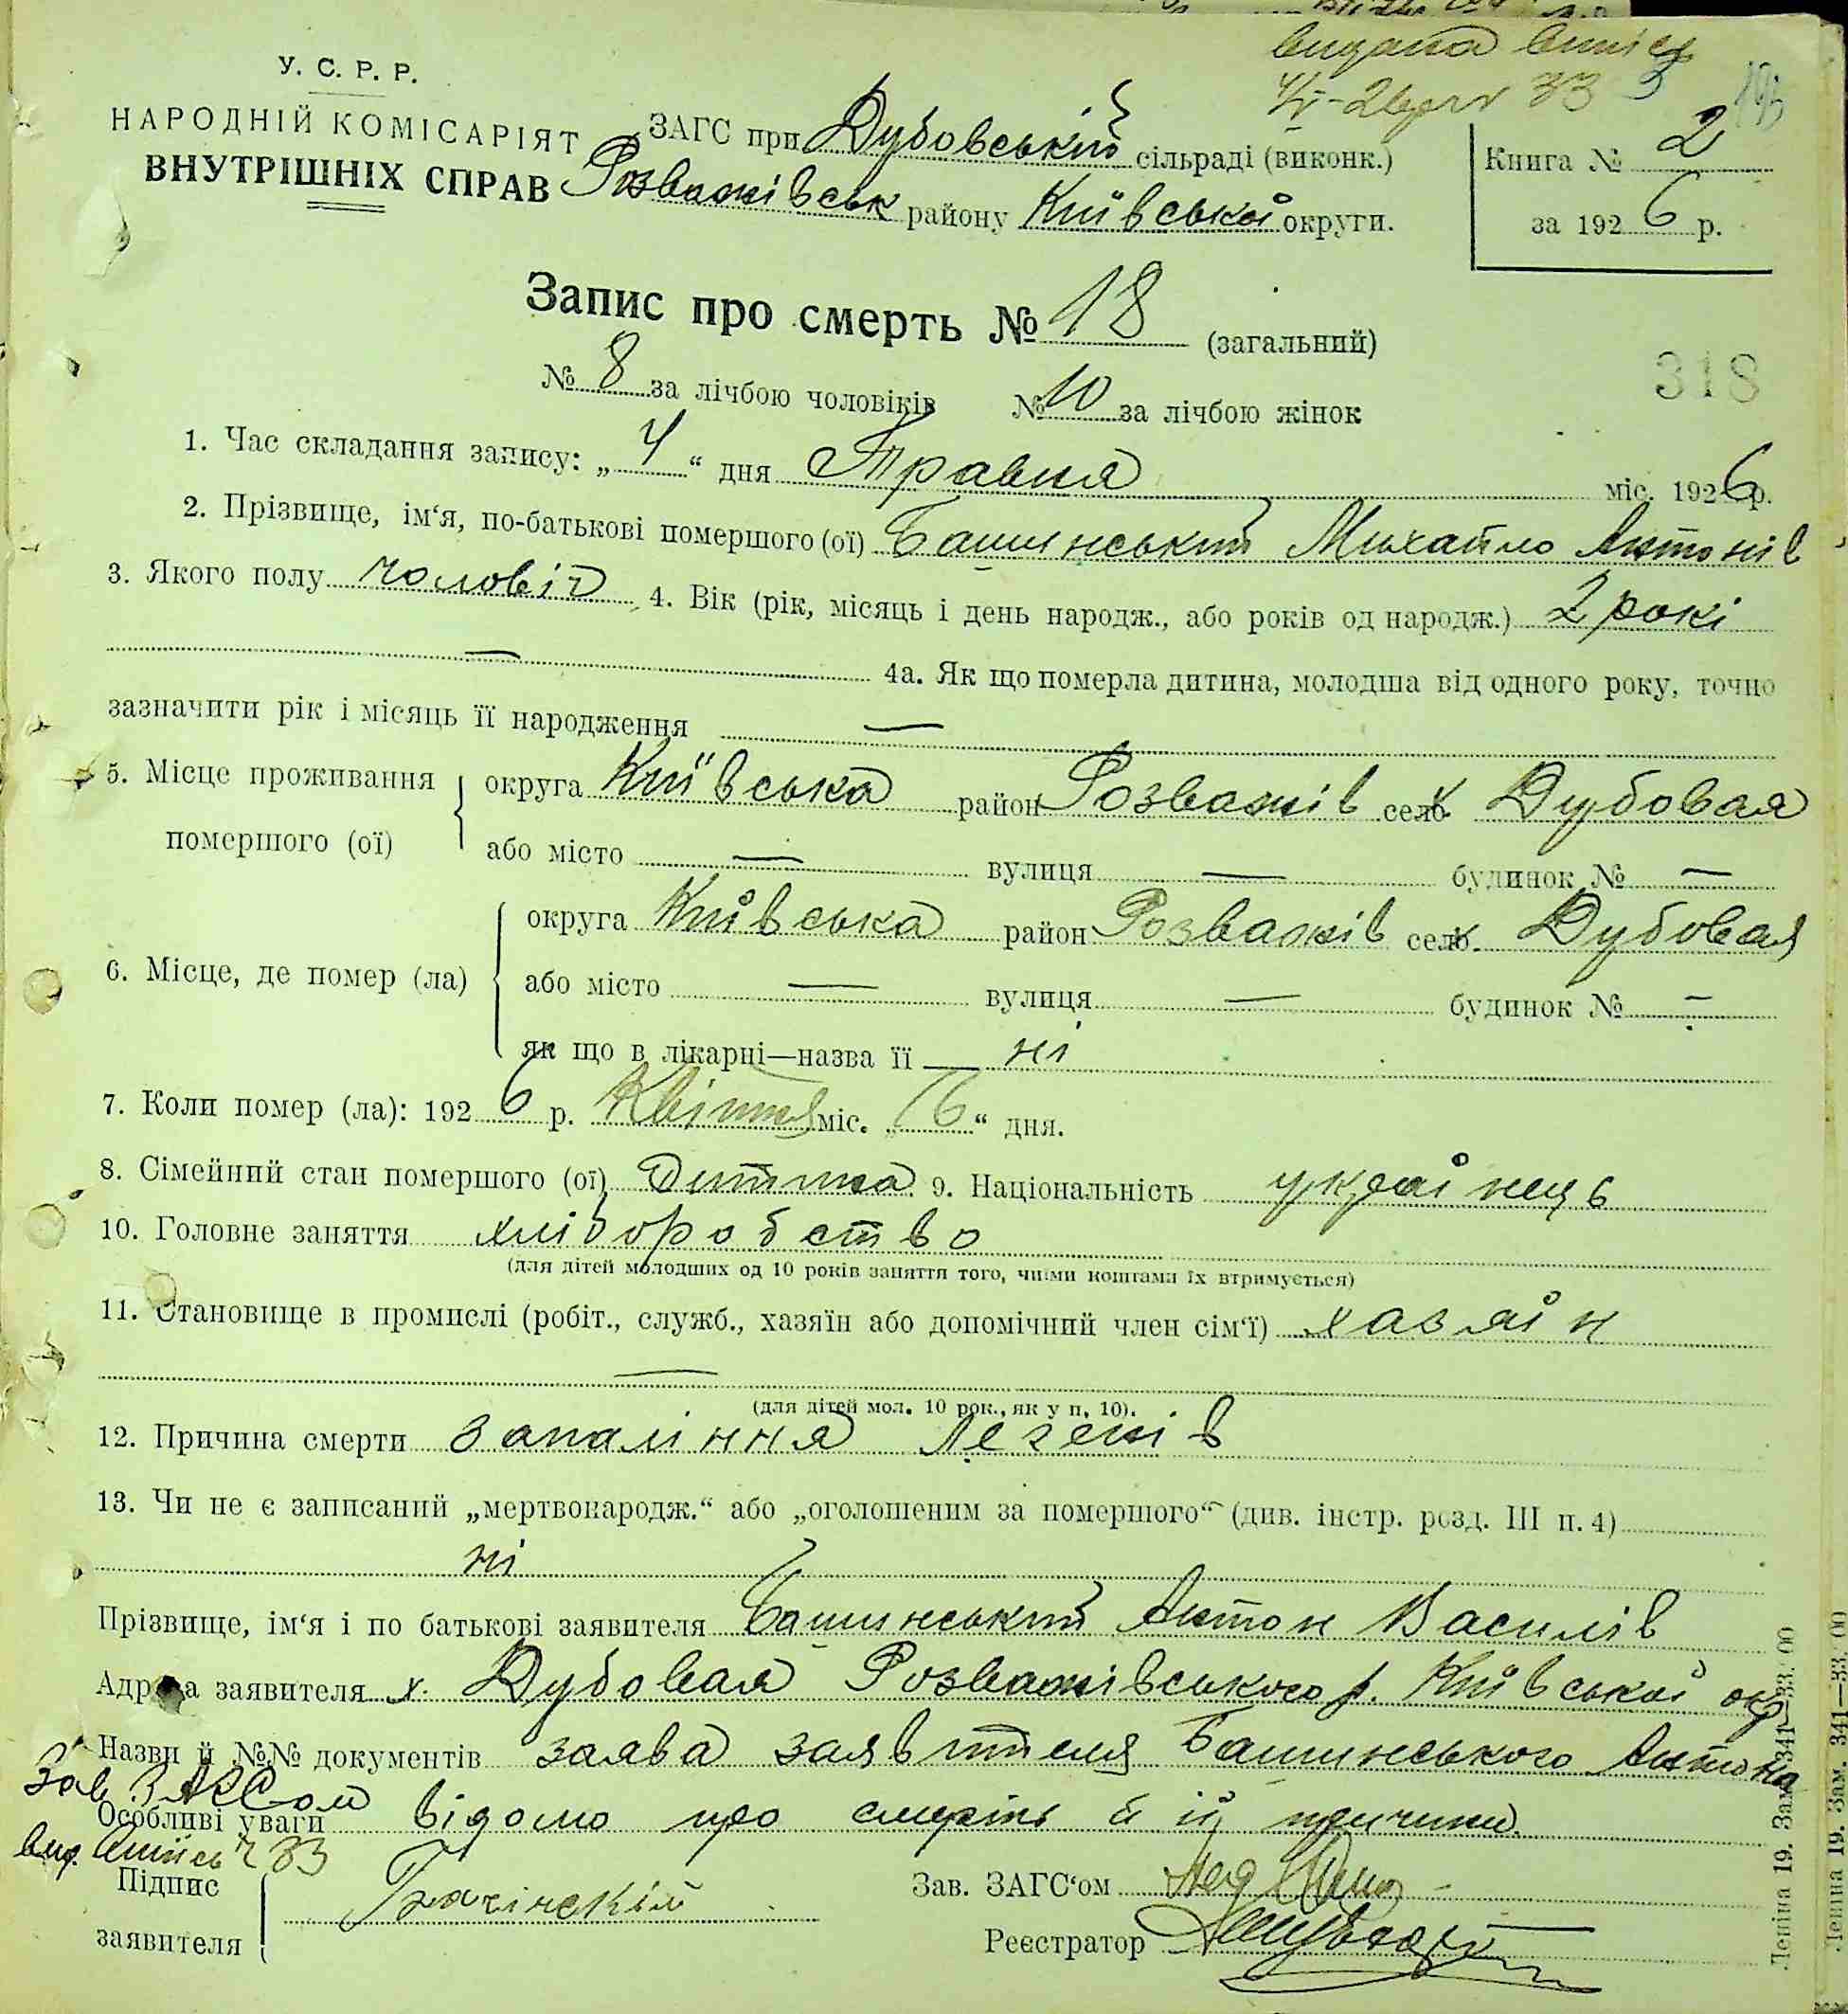 видана виписк
У. С. Р. Р.
НАРОДНІЙ КОМІСАРІЯТ
ВНУТРІШНІХ СПРАВ
ЗАГС при Дубовській сільраді (виконк.)
Розважівськ району Київської округи.
Книга № 2
за 1926 р.
Запис про смерть № 18 (загальний)
318
№ 8 за лічбою чоловіків № 10 за лічбою жінок
1. Час складання запису: „ 4 “ дня Травня міс. 1926 р.
2. Прізвище, ім‘я, по-батькові помершого (ої) Башинський Михайло Антонів
3. Якого полу чоловіч 4. Вік (рік, місяць і день народж., або років од народж.) 2 рокі
— 4а. Як що померла дитина, молодша від одного року, точно
зазначити рік і місяць її народження —
5. Місце проживання помершого (ої) округа Київська район Розважів село х Дубовая
або місто — вулиця — будинок № —
6. Місце, де помер (ла) округа Київська район Розважів село х. Дубовая
або місто — вулиця — будинок № —
як що в лікарні—назва її ні
7. Коли помер (ла): 1926 р. Квітня міс. „ 16 “ дня.
8. Сімейний стан помершого (ої) Дитина 9. Національність українець
10. Головне заняття хліборобство
(для дітей молодших од 10 років заняття того, чиїми коштами їх втримується)
11. Становище в промислі (робіт., служб., хазяїн або допомічний член сім‘ї) хазяїн
—
(для дітей мол. 10 рок., як у п. 10).
12. Причина смерти запаління легенів
13. Чи не є записаний „мертвонародж.“ або „оголошеним за помершого“ (див. інстр. розд. III п. 4)
ні
Прізвище, ім‘я і по батькові заявителя Башинський Антон Василів
Адреса заявителя х. Дубовая Розважівського р. Київської окр
Назви й №№ документів заява заявителя Башинського Антона
Зав. ЗАГСом
Особливі уваги відомо про смерть й її причини.
вид. виписъ 33
Підпис заявителя Бачінскій
Зав. ЗАГС‘ом
Реєстратор
Леніна 19. Зам. 341—33. 00
Леніна 19. Зам. 341—33. 00